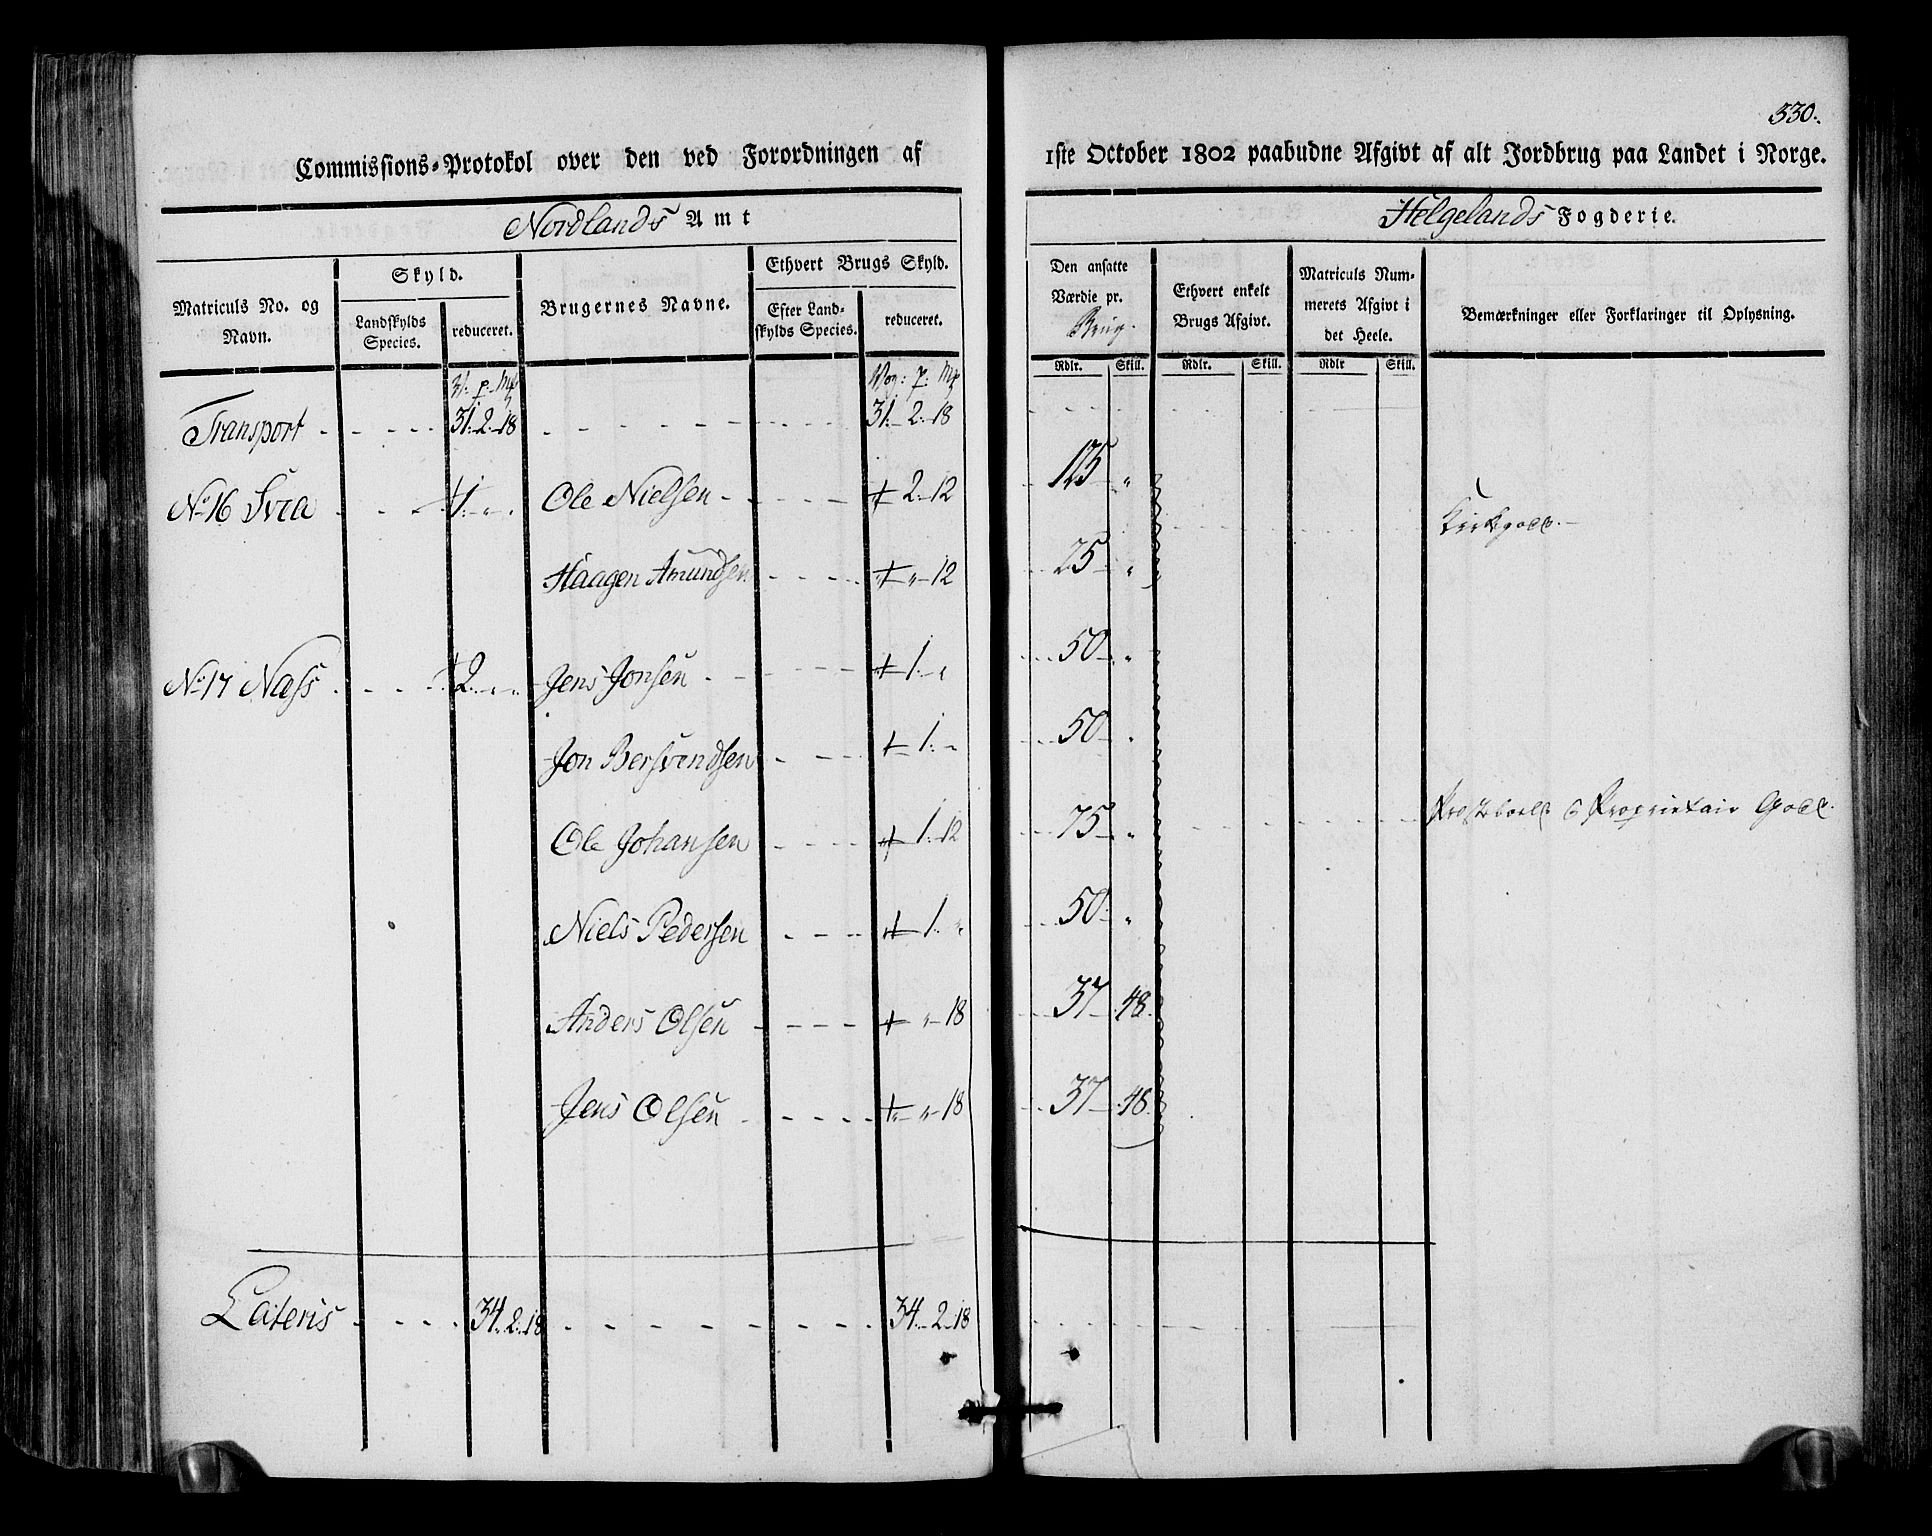 330.
Commissions-Protokol over den ved Forordningen af 1ste October 1802 paabudne Afgivt af alt Jordbrug paa Landet i Norge.
Nordlands Amt Helgelands Fogderie.
Matriculs No. og Navn. Skyld. Landskylds Species. reduceret. Brugernes Navne. Ethvert Brugs Skyld. Efter Landskylds Species. reduceret. Den ansatte Værdie pr. Brug. Ethvert enkelt Brugs Afgivt. Matriculs Nummerets Afgivt i det Heele. Bemærkninger eller Forklaringer til Oplysning.
Rdlr. Skill. Rdlr. Skill. Rdlr Skill.
Transport 31. 2. 18 31. 2. 18
No. 16 Svea 1. „ „ Ole Nielsen 2. 12 125 „ Kirkegods.
Haagen Amundsen „ 12 25 „
No. 17 Næss 2. „ „ Jens Jonsen 1. „ 50 „
Jon Bersvendsen 1. „ 50 „
Ole Johansen 1. 12 75 „ Præsteboels & Proprietair Gods.
Niels Pedersen 1. „ 50 „
Anders Olsen „ 18 37 48.
Jens Olsen „ 18 37 48.
Lateris 34. 2. 18 34. 2. 18